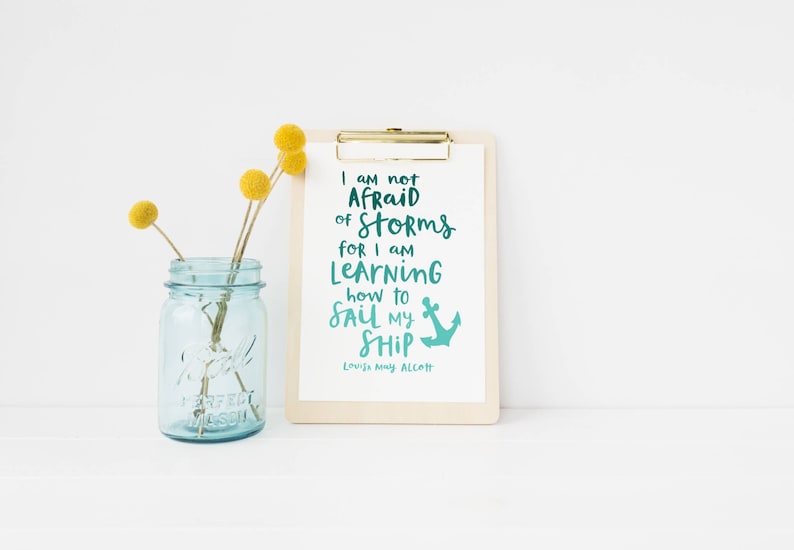 Ball
PERFECT
MASON
I AM NOT
AFRAID
OF STORMS
FOR I AM
LEARNING
HOW TO
SAIL MY
SHIP
LOUISA MAY ALCOTT